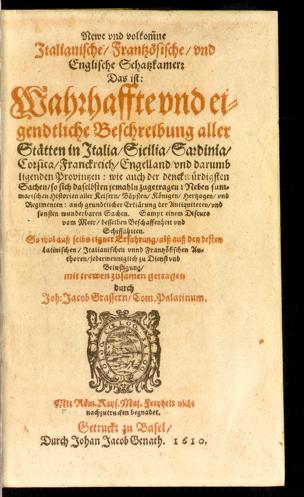 Newe vnd volkom̃ne
Italianische/ Frantzösische/ vnd
Englische Schatzkamer:
Das ist:
Wahrhaffte vnd ei-
gendtliche Beschreibung aller
Stätten in Italia/ Sicilia/ Sardinia/
Corsica/ Franckreich/ Engelland/ vnd darumb
ligenden Provintzen: wie auch der denckwürdigsten
Sachen/ so sich daselbsten jemahln zugetragen: Neben sum-
marischen Historien aller Keisern/ Bäpsten/ Königen/ Hertzogen/ vnd
Regimenten: auch grundtlicher Erklärung der Antiquiteten/ vnd
sonsten wunderbaren Sachen. Sampt einem Discurs
vom Meer/ desselben Beschaffenheit vnd
Schiffahrten.
So wol auß selbs eigner Erfahrung/ alß auß den besten
Latinischen/ Italianischen vnnd Frantzösischen Au-
thoren/ jedermenniglich zu Dienst vnd
Belustigung/
mit trewen zusamen getragen
durch
Joh: Jacob Grassern/ Com. Palatinum.
Mit Röm. Kays. Maj. Freyheit nicht
nachzutrucken begnadet.
Getruckt zu Basel/
Durch Johan Jacob Genath. 1610.